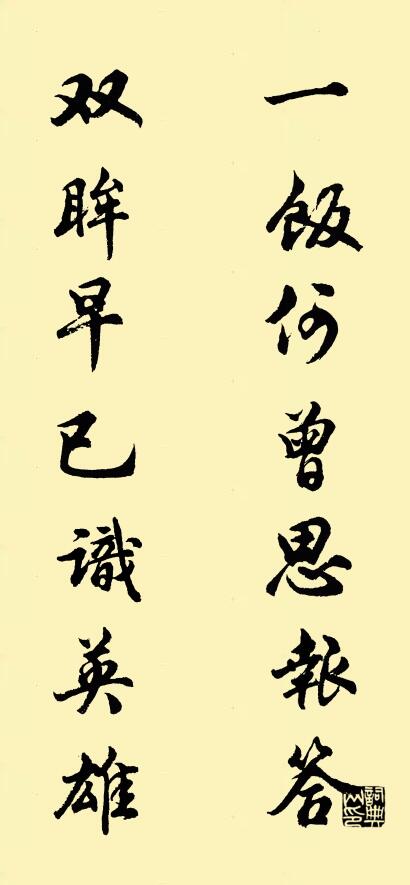 一飯何曾思報答
双眸早已識英雄